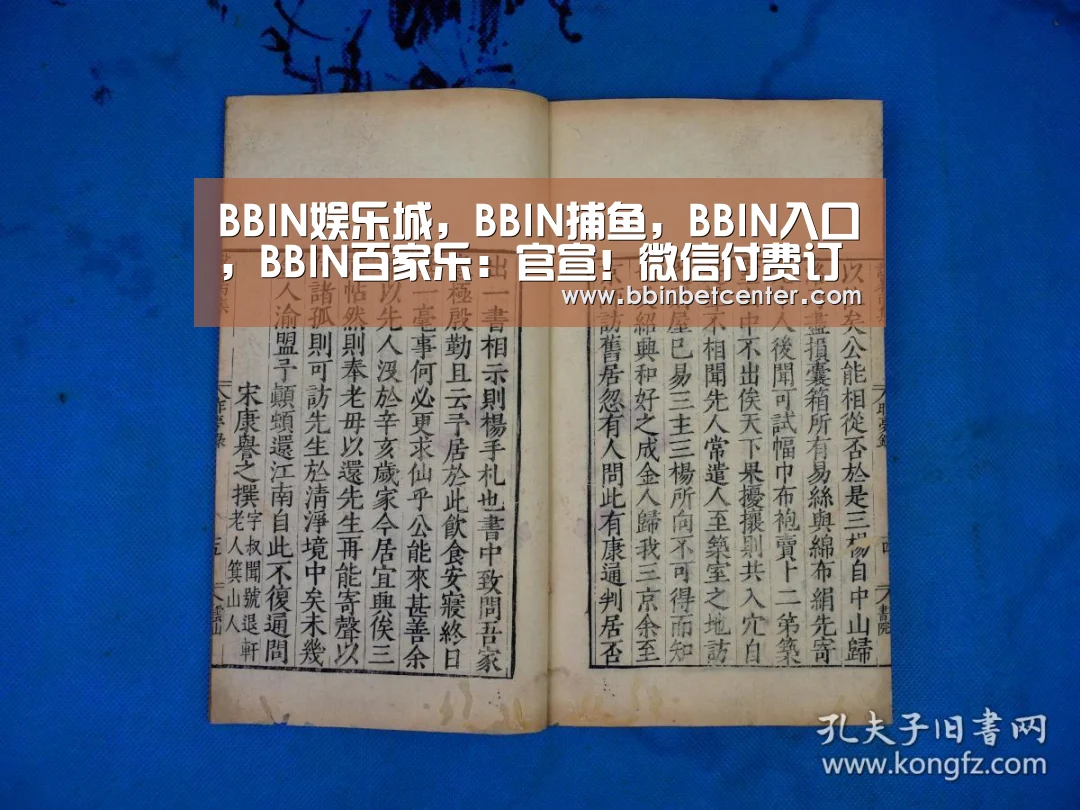 BBIN娱乐城，BBIN捕鱼，BBIN入口
，BBIN百家乐：官宣！微信付费订
www.bbinbetcenter.com
以矣公能相從否於是三楊自中山歸
盡損囊箱所有易絲與綿布絹先寄
人後聞可試幅巾布袍賣卜二弟築
中不出俟天下果擾攘則共入穴自
不相聞先人常遣人至築室之地訪
屋已易三主三楊所向不可得而知
紹興和好之成金人歸我三京余至
訪舊居忽有人問此有康通判居否
出一書相示則楊手札也書中致問吾家
極殷勤且云予居於此飲食安寢終日
一毫事何必更求仙乎公能來甚善余
以先人沒於辛亥歲家今居宜興俟三
帖然則奉老母以還先生再能寄聲以
諸孤則可訪先生於清淨境中矣未幾
人渝盟予顛頓還江南自此不復通問
宋康譽之撰字叔聞號退軒
老人箕山人
昨夢錄
四
書院
昨夢錄
五
雲山
孔夫子旧書网
www.kongfz.com